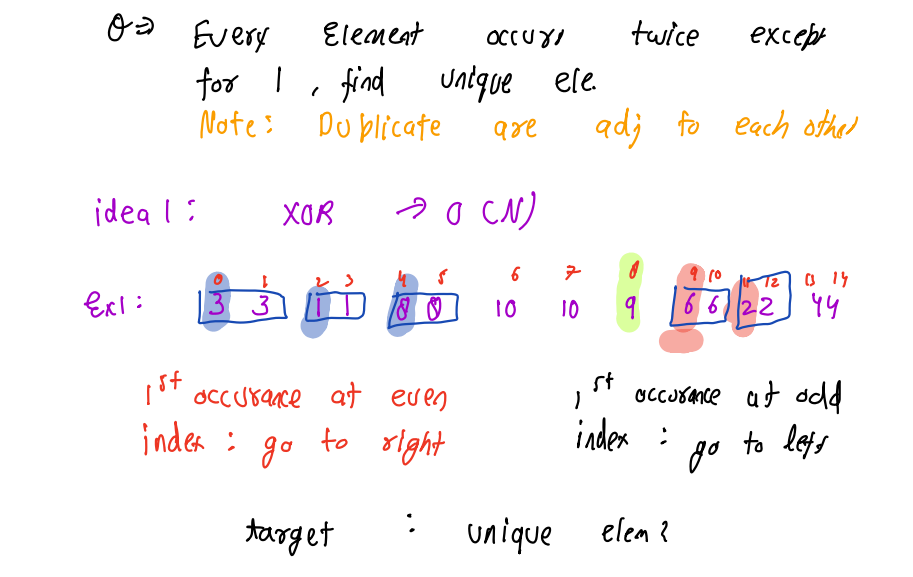 Q⇒ Every Element occurs twice except
for 1, find unique ele.
Note: Duplicate are adj to each other
idea 1: XOR → O(N)
0 1 2 3 4 5 6 7 8 9 10 11 12 13 14
Ex1: 3 3 1 1 8 8 10 10 9 6 6 2 2 4 4
1st occurance at even
index: go to right
1st occurance at odd
index: go to left
target : unique elem?